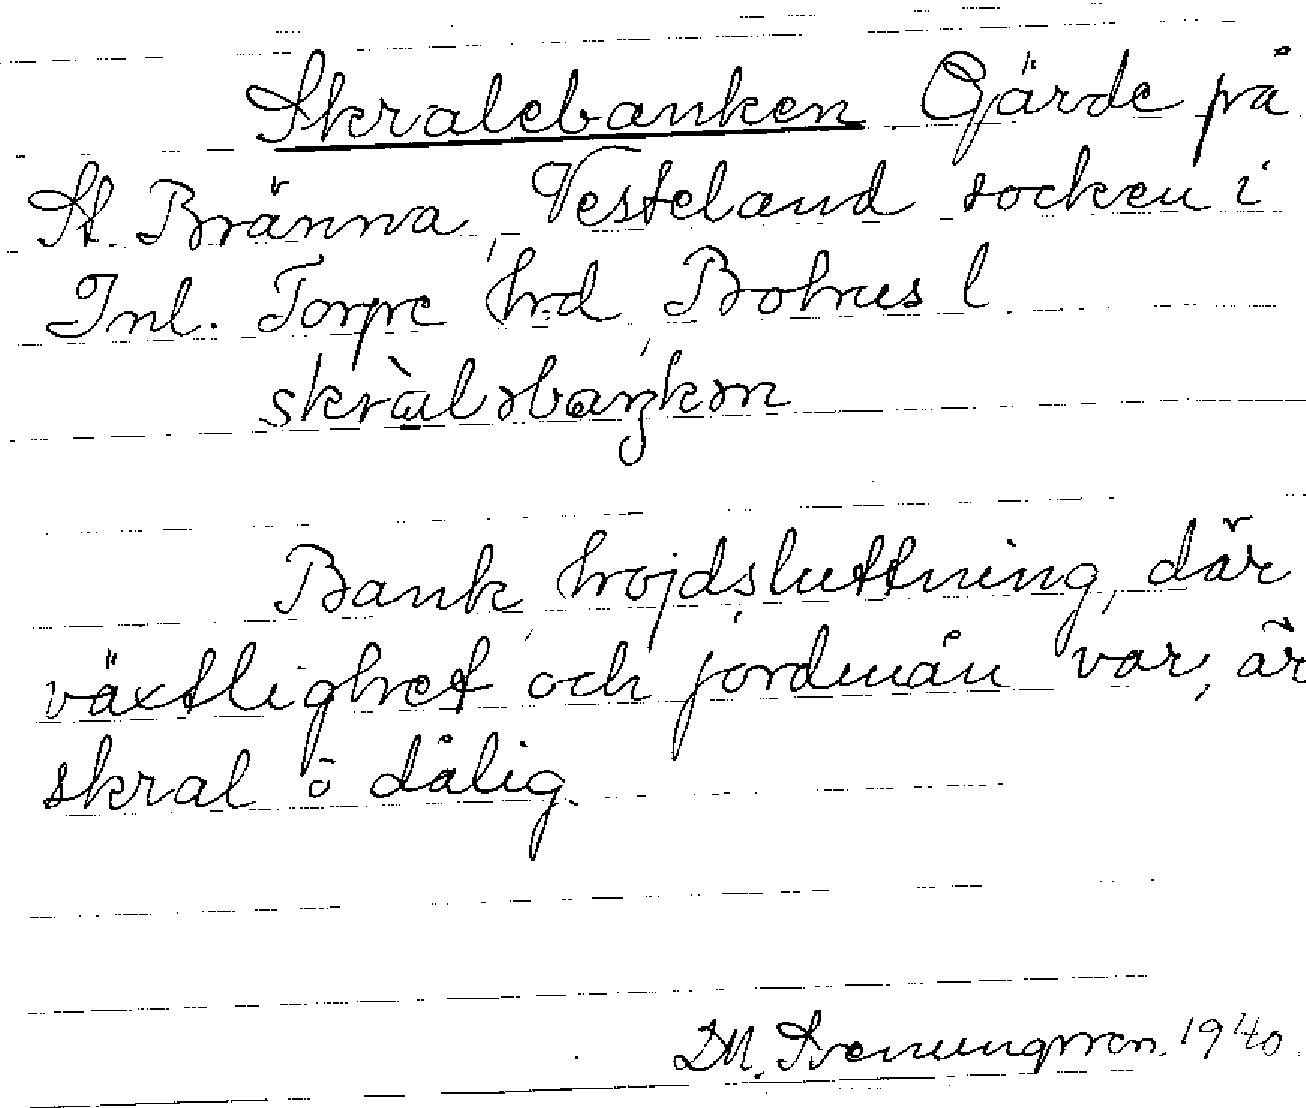 Skralebanken Gärde på
St. Bränna, Vesteland socken i
Inl. Torpe hrd, Bohus l
skràləbaŋkən
Bank, hojdsluttning, där
växtlighet och jordmån var, är
skral ō dålig.
DM. Svenungsson. 1940.